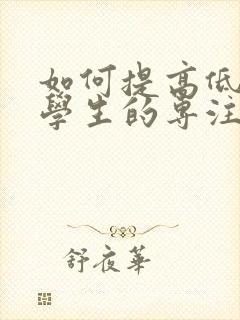 如何提高低
學生的專注
舒夜華